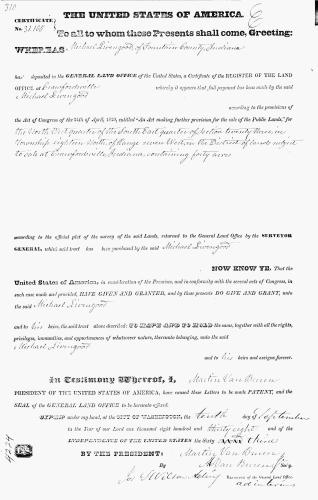 310
THE UNITED STATES OF AMERICA.
CERTIFICATE
No.
To all to whom these Presents shall come, Greeting:
WHEREAS Michael Livengood, of Fountain County, Indiana
has deposited in the GENERAL LAND OFFICE of the United States, a Certificate of the REGISTER OF THE LAND
OFFICE at Crawfordsville whereby it appears that full payment has been made by the said
Michael Livengood
according to the provisions
of the Act of Congress of the 24th of April, 1820, entitled "An Act making further provision for the sale of the Public Lands," for
the North East quarter of the South East quarter of Section twenty three, in
Township eighteen North, of Range seven West, in the District of lands subject
to sale at Crawfordsville, Indiana, containing forty acres
according to the official plat of the survey of the said Lands, returned to the General Land Office by the SURVEYOR
GENERAL, which said tract has been purchased by the said Michael Livengood
NOW KNOW YE, That the
United States of America, in consideration of the Premises, and in conformity with the several acts of Congress, in
such case made and provided, HAVE GIVEN AND GRANTED, and by these presents DO GIVE AND GRANT, unto
the said Michael Livengood
and to his heirs, the said tract above described: TO HAVE AND TO HOLD the same, together with all the rights,
privileges, immunities, and appurtenances of whatsoever nature, thereunto belonging, unto the said
Michael Livengood
and to his heirs and assigns forever.
In Testimony Whereof, I, Martin Van Buren
PRESIDENT OF THE UNITED STATES OF AMERICA, have caused these Letters to be made PATENT, and the
SEAL of the GENERAL LAND OFFICE to be hereunto affixed.
GIVEN under my hand, at the CITY OF WASHINGTON, the tenth day of September
in the Year of our Lord one thousand eight hundred and thirty eight and of the
INDEPENDENCE OF THE UNITED STATES the Sixty third
BY THE PRESIDENT: Martin Van Buren
By Sec'y.
Acting RECORDER of the General Land Office
ad interim